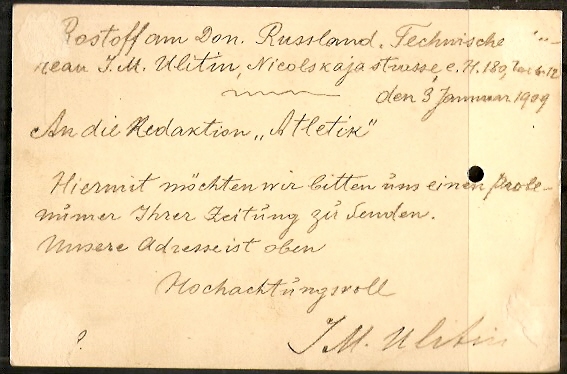 Rostoff am Don. Russland. Technische
neau J. M. Ulitin, Nicolskaja strasse e. H. 180,
den 3 Januar 1909
An die Redaktion „Atletik“
Hiermit möchten wir bitten uns einen Probe-
numer Ihrer Zeitung zu senden.
Unsere Adresse ist oben
Hochachtungsvoll
J. M. Ulitin
?